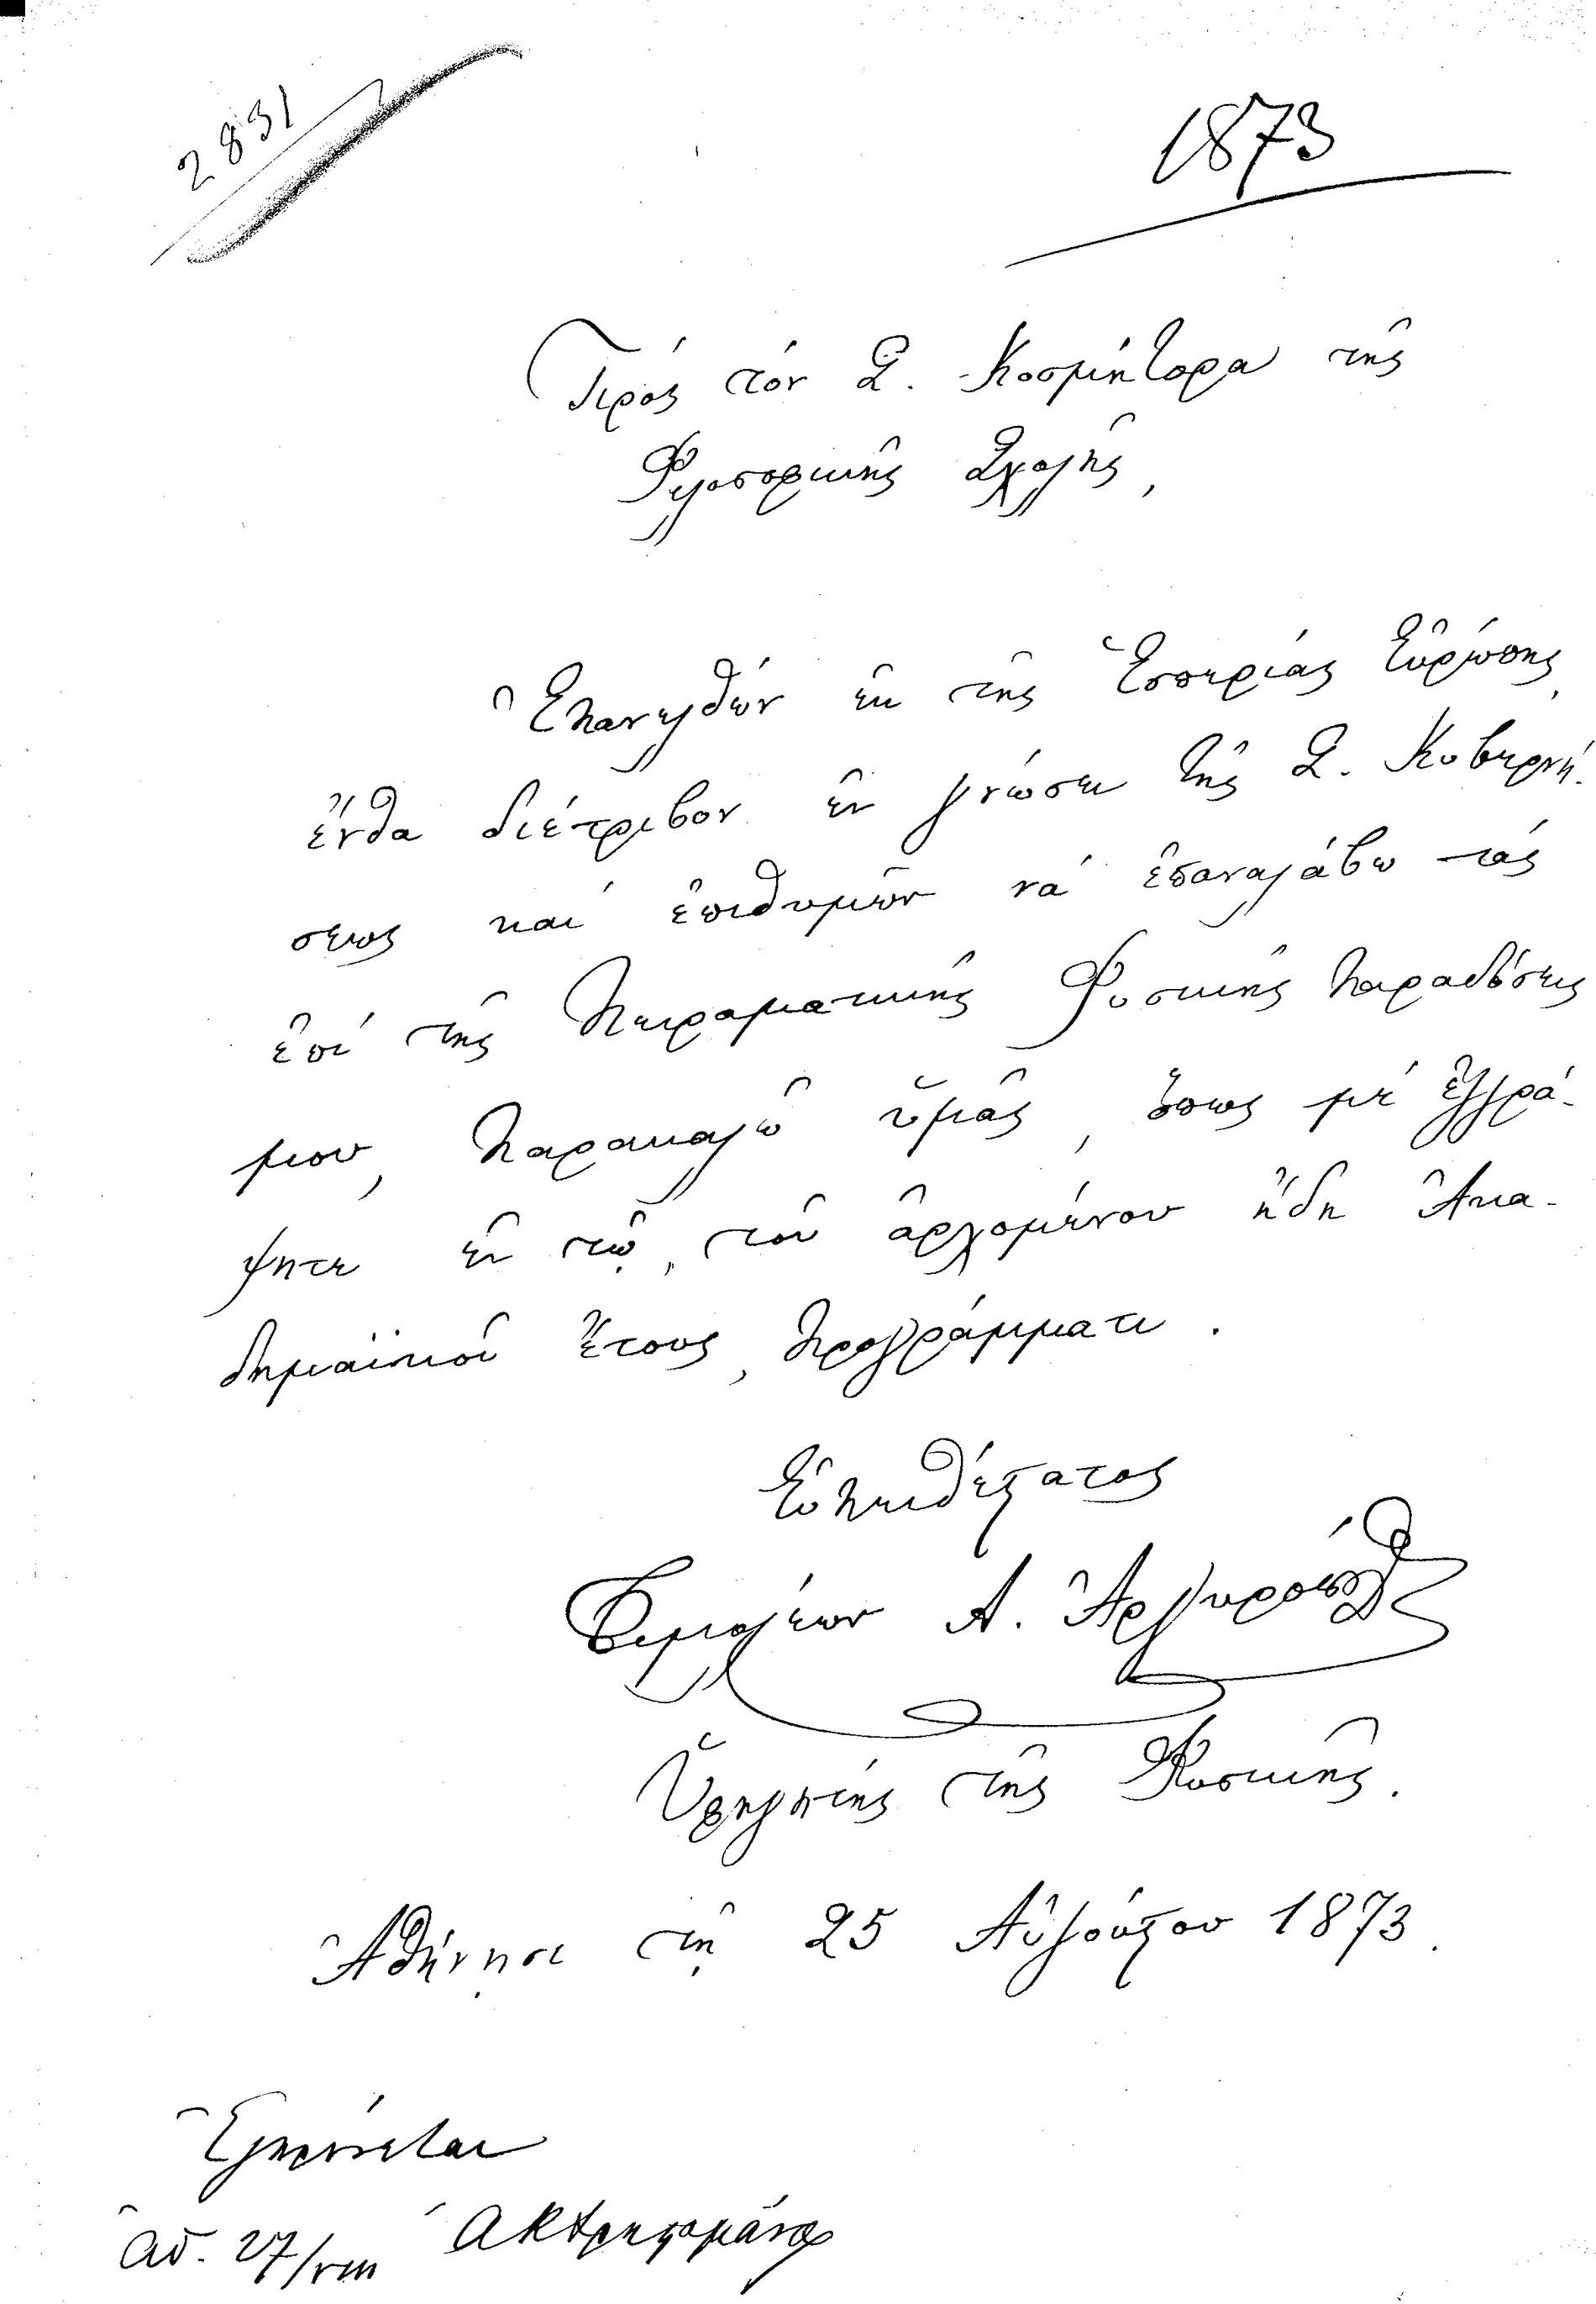 2831
1873
Πρός τόν Σ. Κοσμήτορα τῆς
Φιλοσοφικῆς Σχολῆς,
Ἐπανελθών ἐκ τῆς Ἑσπερίας Εὐρώπης,
ἔνθα διέτριβον ἐν γνώσει τῆς Σ. Κυβερνή-
σεως καί ἐπιθυμῶν νά ἐπαναλάβω τάς
ἐπί τῆς Πειραματικῆς Φυσικῆς παραδόσεις
μου, παρακαλῶ ὑμᾶς, ὅπως μέ ἐγγρά-
ψητε ἐν τῷ, τοῦ ἀρχομένου ἤδη Ἀκα-
δημαϊκοῦ ἔτους, προγράμματι.
Εὐπειθέστατος
Τιμολέων Α. Ἀργυρόπουλος
Ὑφηγητής τῆς Φυσικῆς.
Ἀθήνησι τῇ 25 Αὐγούστου 1873.
Ἐγκρίνεται
27/VIII